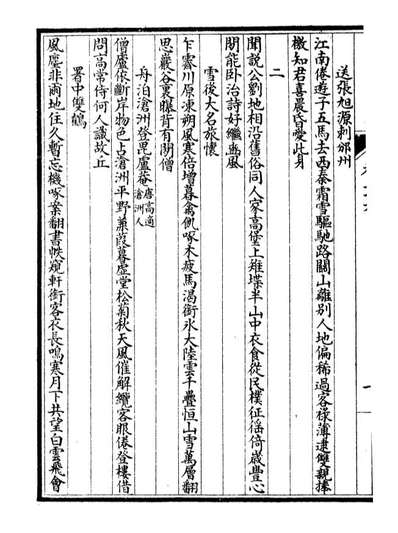 送張旭源刺邠州
江南倦遊子五馬去西秦霜雪驅馳路關山離別人地偏稀過客祿薄逮雙親捧
檄知君喜晨昏愛此身
二
聞說公劉地相沿舊俗同人家高堡上雉堞半山中衣食從民樸征徭倚歲豐心
閒能卧治詩好繼豳風
雪後大名旅懷
乍霽川原凍朔風寒倍增暮禽飢啄木疲馬渴銜氷大陸雲千疊恒山雪萬層翻
思巖谷裏曝背有閒僧
舟泊滄洲登毘盧菴唐高適滄洲人
僧廬依斷岸物色占滄洲平野蒹葭暮虛堂松菊秋天風催解纜客眼倦登樓借
問高常侍何人識故丘
署中雙鶴
風塵非兩地住久暫忘機啄案翻書帙窺軒銜客衣長鳴寒月下共望白雲飛會